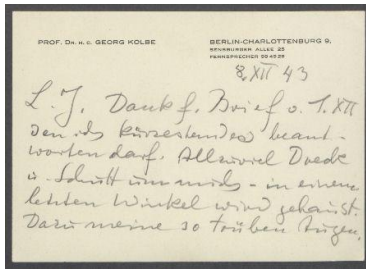 PROF. DR. H. C. GEORG KOLBE
BERLIN-CHARLOTTENBURG 9,
SENSBURGER ALLEE 25
FERNSPRECHER
8. XII 43
L. J. Dank f. Brief v. 1. XII
den ich kürzestens beant-
worten darf. Allzuviel Dreck
u. Schutt um mich - in einem
letzten Winkel wird gehaust.
Dazu meine so trüben Augen.